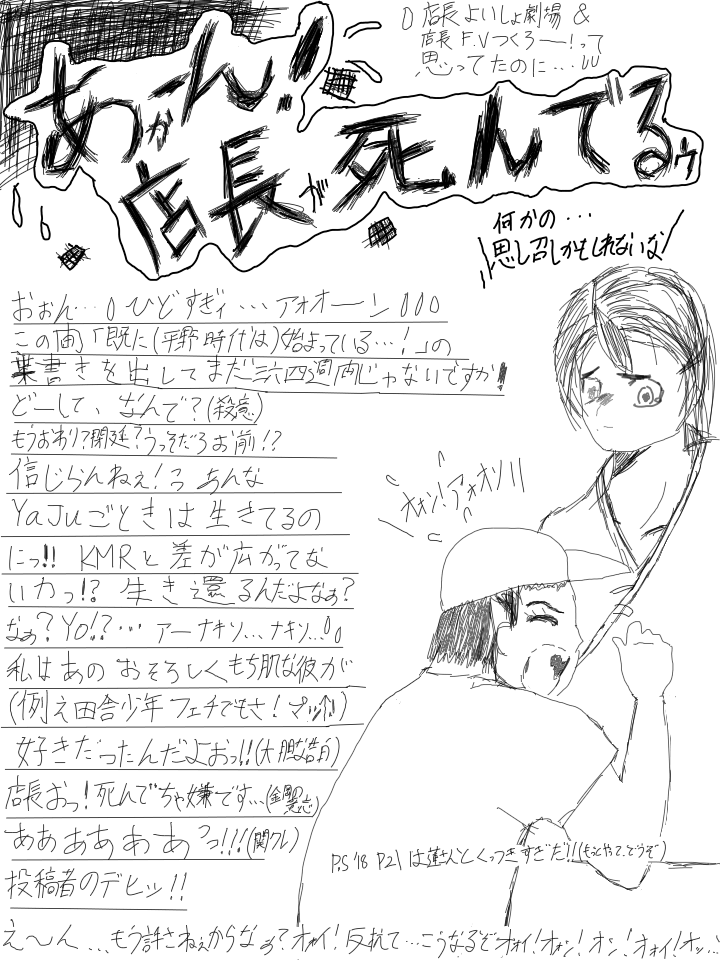 店長よいしょ劇場 &
店長 F.Vつくろー!って
思ってたのに…
あかん!
店長が死んでるゥ
何かの…
思し召しかもしれないな
おぉん… ひどすぎィ…アォオーン
この前「既に(平野時代は)始まっている…!」の
葉書きを出してまだ三六四週間じゃないですか!
どーして、なんで?(殺意)
もうおわり?閉廷?うっそだろお前!?
信じらんねぇ! あんな
YaJuごときは生きてるの
にっ!! KMRと差が広がってな
いかっ!? 生き還るんだよなぁ?
なぁ?Yo!?… アーナキソ…ナキソ…
私はあのおそろしくもち肌な彼が
(例え田舎少年フェチでもさ!
好きだったんだよおっ!!(大胆な告白)
店長おっ!死んでちゃ嫌です…
ああああああっ!!!(関クレ)
投稿者のデヒッ!!
オォン!アォオン!!
P.S '18 P21は蓮さんとくっつきすぎだ!!(もっとやって、どうぞ)
え〜ん…もう許さねぇからなぁ?オォイ!反抗して…こうなるぞオォイ!オォン!オン!オォイ!オッ…